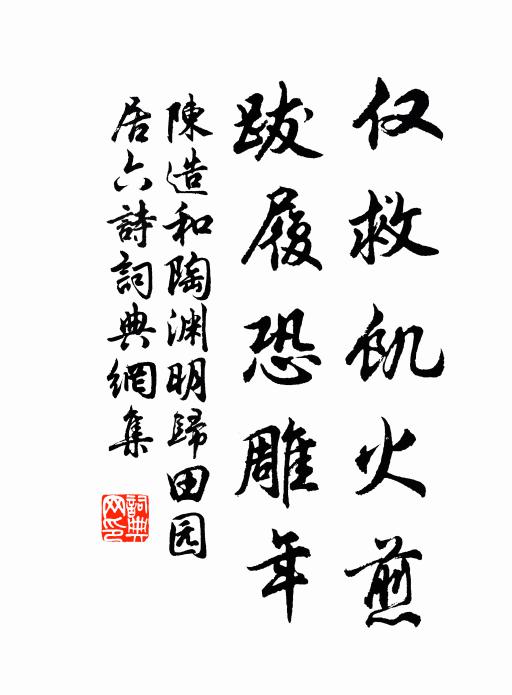 仅救飢火煎
跋履恐雕年
陳造和陶渊明歸田园
居六詩詞典網集
詞典
网印